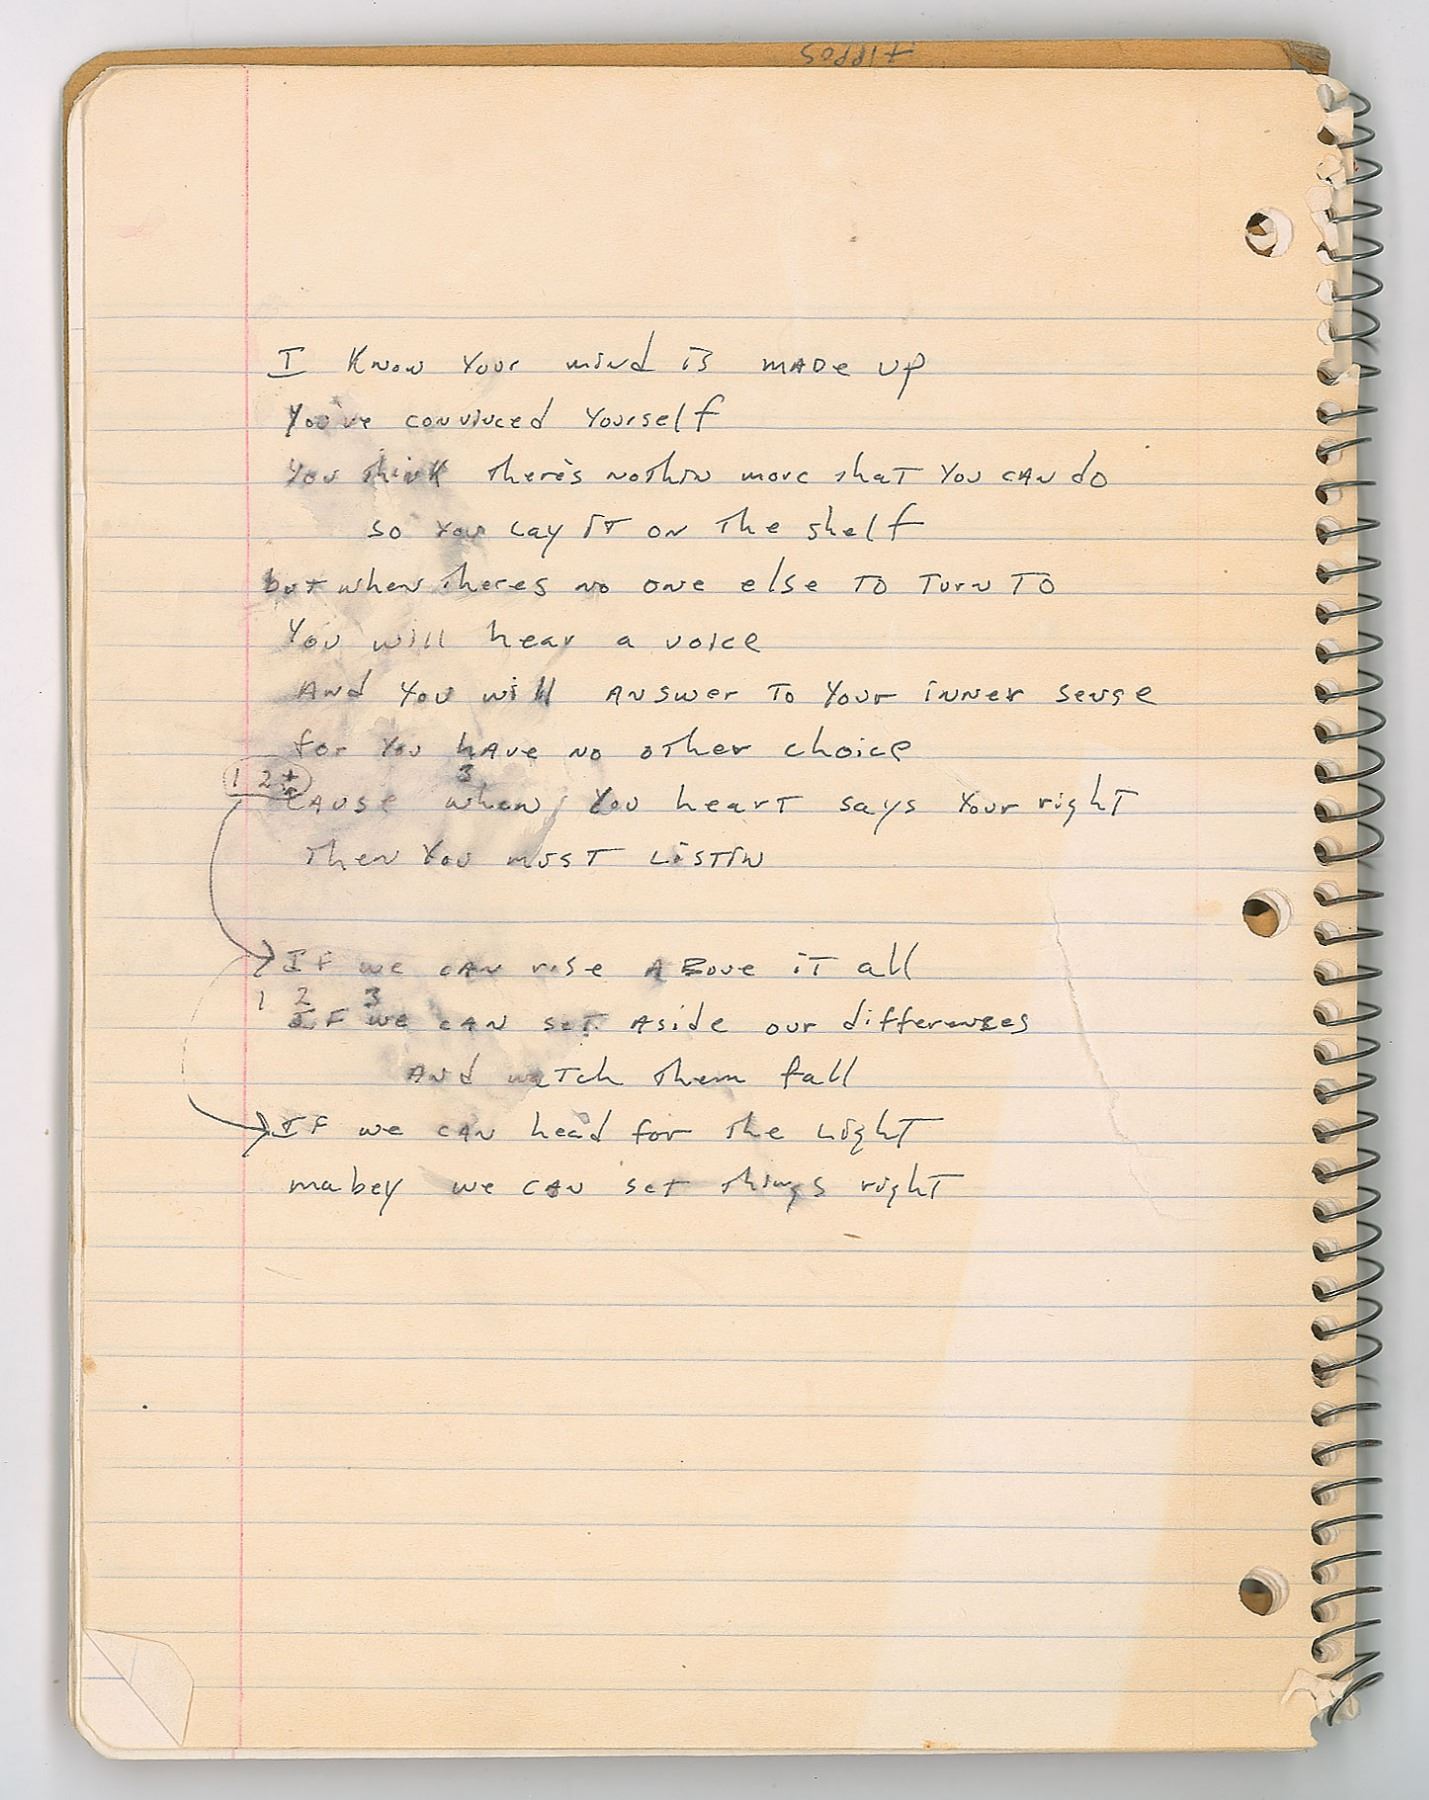 I Know Your mind is MADe up
You've convinced Yourself
You think there's nothin more that You CAN do
so You Lay iT on The shelf
but when theres no one else TO Turn TO
You will hear a voice
ANd You will ANswer To Your iNNer sense
for You hAve No other choice
1 2 + 3
CAuse when You hearT says Your righT
Then You musT ListiN
If we CAN rise ABove iT all
1 2 3
IF we CAN set Aside our differences
ANd waTch Them fall
IF we CAN head for The LighT
mabey we CAN set Things righT